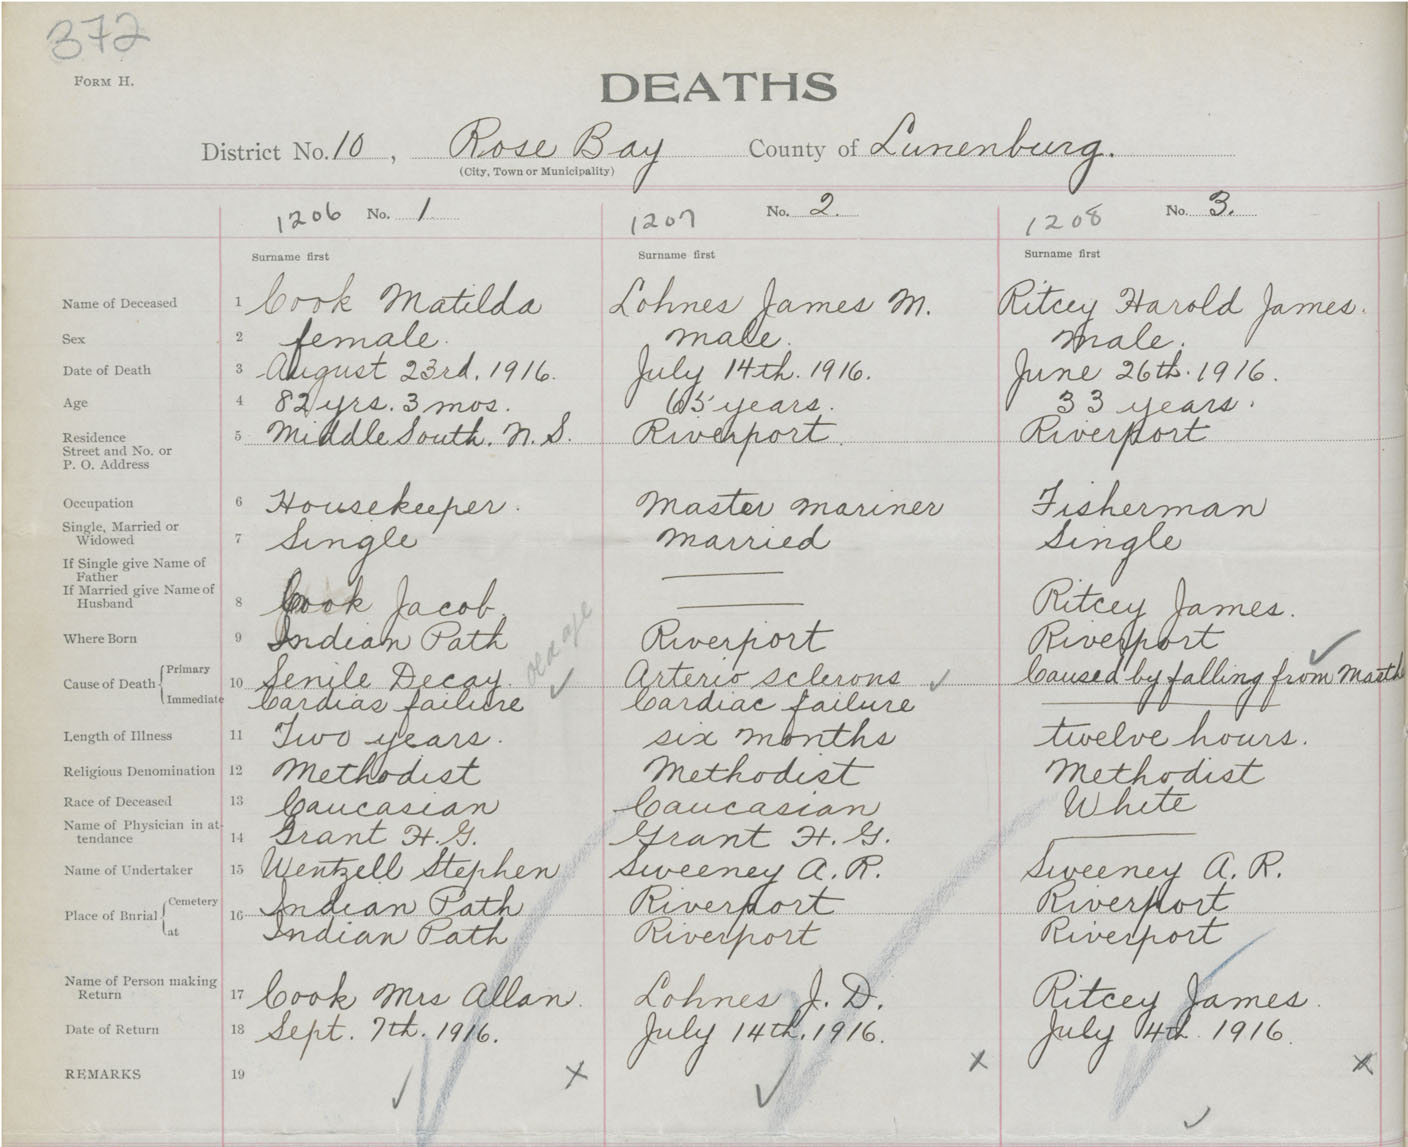 372
FORM H.
DEATHS
District No. 10, Rose Bay County of Lunenburg.
(City, Town or Municipality)
1206 No. 1 1207 No. 2. 1208 No. 3.
Surname first Surname first Surname first
Name of Deceased 1 Cook Matilda Lohnes James M. Ritcey Harold James.
Sex 2 female. male. male.
Date of Death 3 August 23rd. 1916. July 14th. 1916. June 26th. 1916.
Age 4 82 yrs. 3 mos. 65 years. 33 years.
Residence 5 Middle South. N. S. Riverport. Riverport
Street and No. or
P. O. Address
Occupation 6 Housekeeper. Master mariner Fisherman
Single, Married or
Widowed 7 Single Married Single
If Single give Name of
Father
If Married give Name of
Husband 8 Cook Jacob. Ritcey James.
Where Born 9 Indian Path Riverport Riverport
old age
Cause of Death Primary 10 Senile Decay. Arterio sclerons Caused by falling from Masth
Immediate Cardias failure Cardiac failure
Length of Illness 11 Two years. six months twelve hours.
Religious Denomination 12 Methodist Methodist Methodist
Race of Deceased 13 Caucasian Caucasian White
Name of Physician in at-
tendance 14 Grant H. G. Grant H. G.
Name of Undertaker 15 Wentzell Stephen Sweeney A. R. Sweeney A. R.
Place of Burial Cemetery 16 Indian Path Riverport Riverport
at Indian Path Riverport Riverport
Name of Person making
Return 17 Cook Mrs Allan. Lohnes J. D. Ritcey James.
Date of Return 18 Sept. 7th. 1916. July 14th. 1916. July 4th 1916.
REMARKS 19 x x x